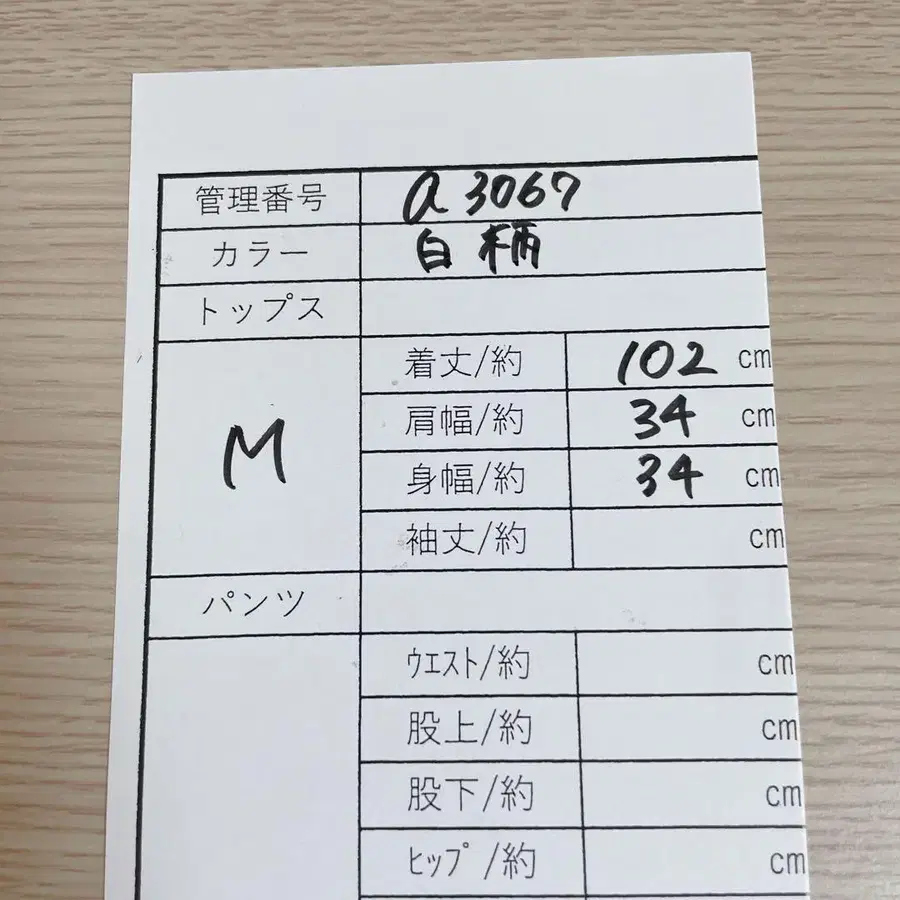 管理番号 a 3067
カラー 白 柄
トップス
M
着丈/約 102 cm
肩幅/約 34 cm
身幅/約 34 cm
袖丈/約 cm
パンツ
ウエスト/約 cm
股上/約 cm
股下/約 cm
ヒップ/約 cm